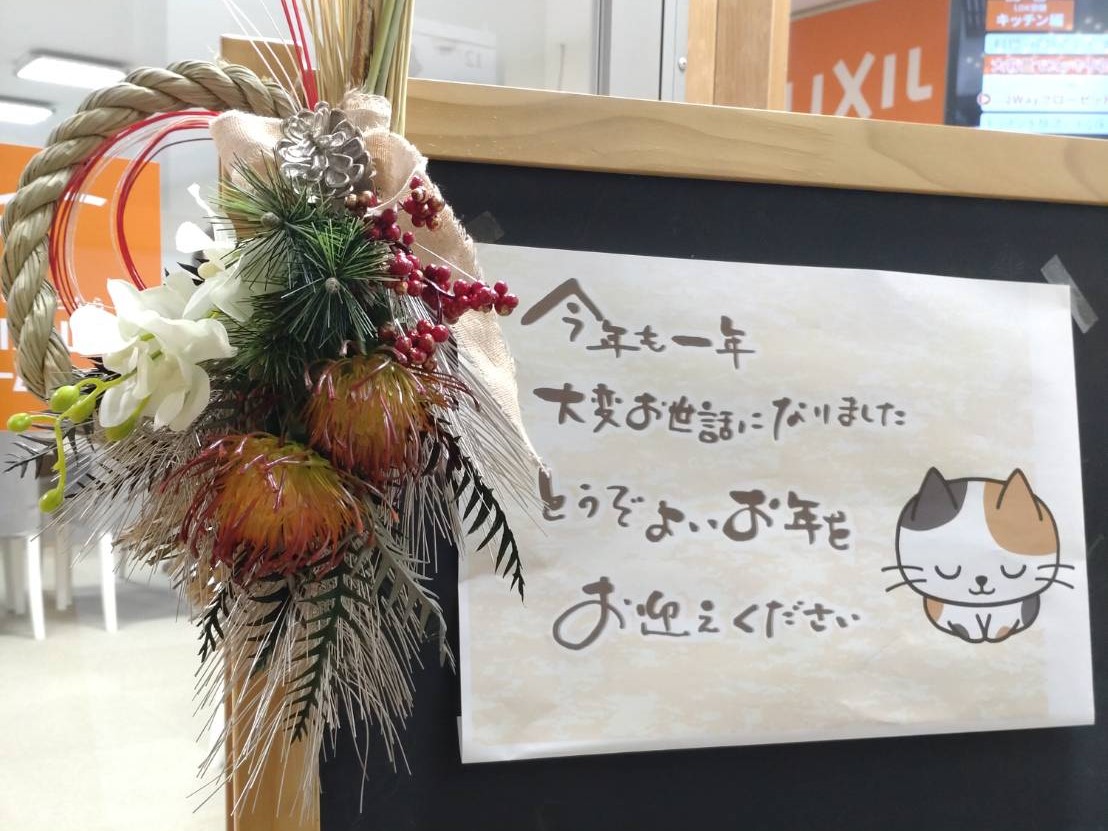 今年も一年
大変お世話になりました
どうぞよいお年を
お迎えください
LIXIL
キッチン編